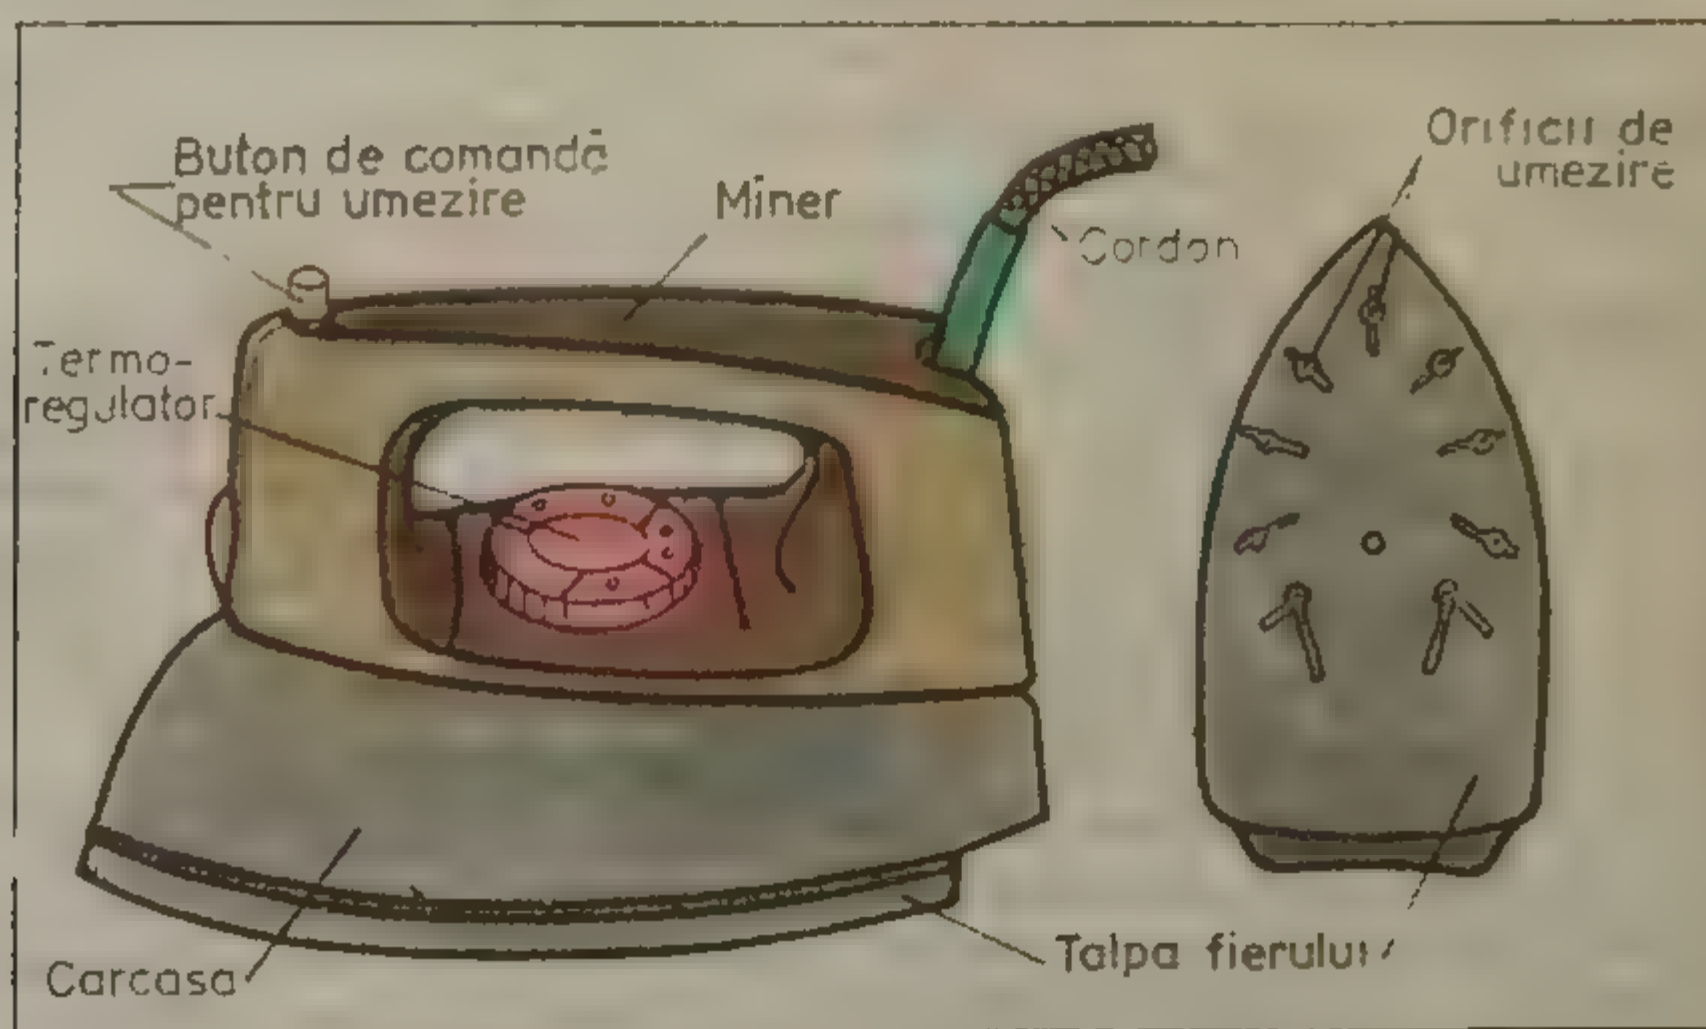 Buton de comandă
pentru umezire
Mîner
Cordon
Orificii de
umezire
Termo-
regulator
Carcasa
Talpa fierului